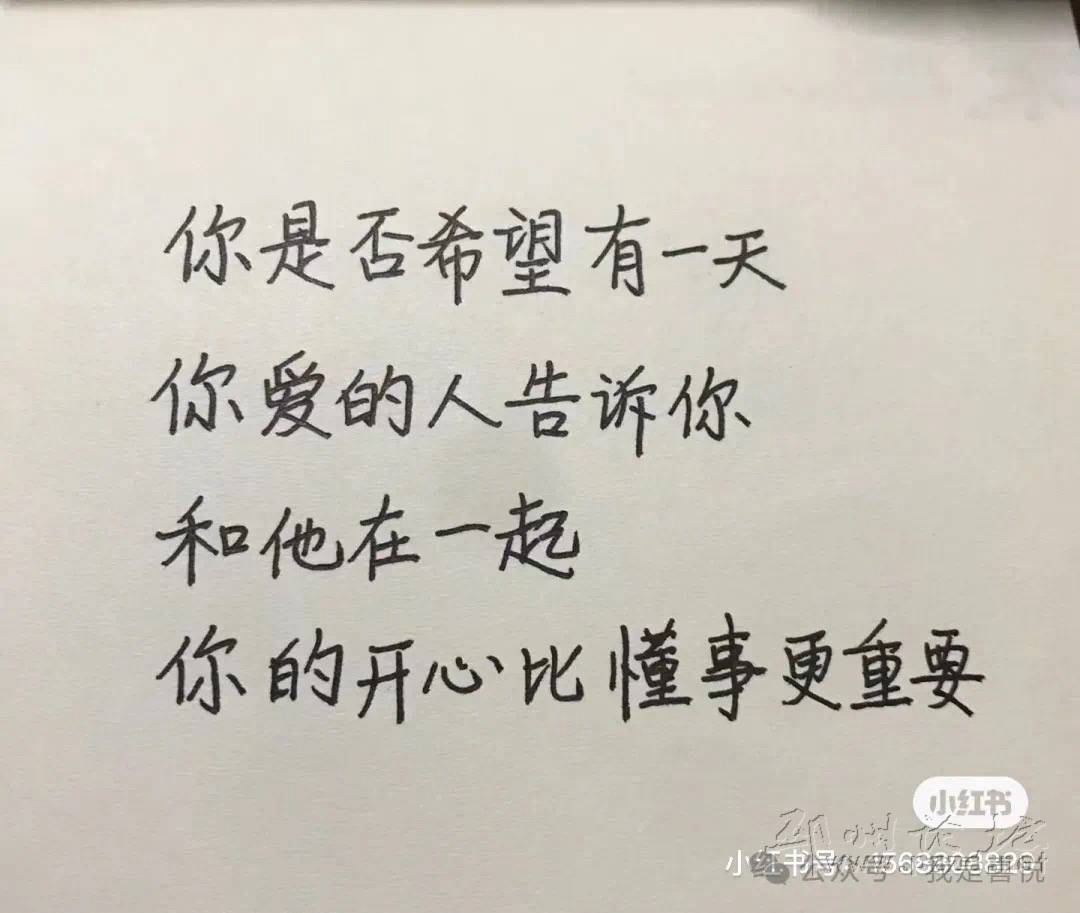 你是否希望有一天
你爱的人告诉你
和他在一起
你的开心比懂事更重要
小红书
小红书号:
公众号·我是善悦